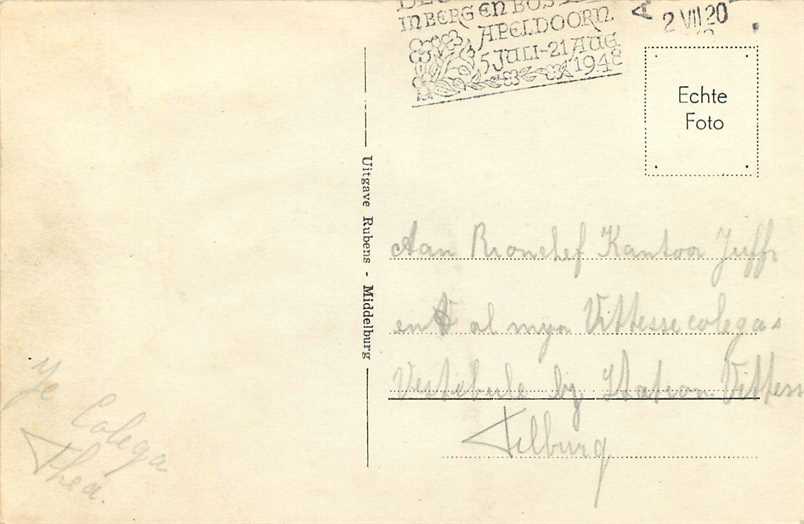 IN BERG EN BOS
APELDOORN.
5 JULI-21 AUG
1948
2 VII 20
Echte
Foto
Uitgave Rubens - Middelburg
Aan Bronchef Kantoor Juffr
en al myn Vittesse colegas
Vestebule by Station Vittess
Tilburg
Je Colega
Thea.